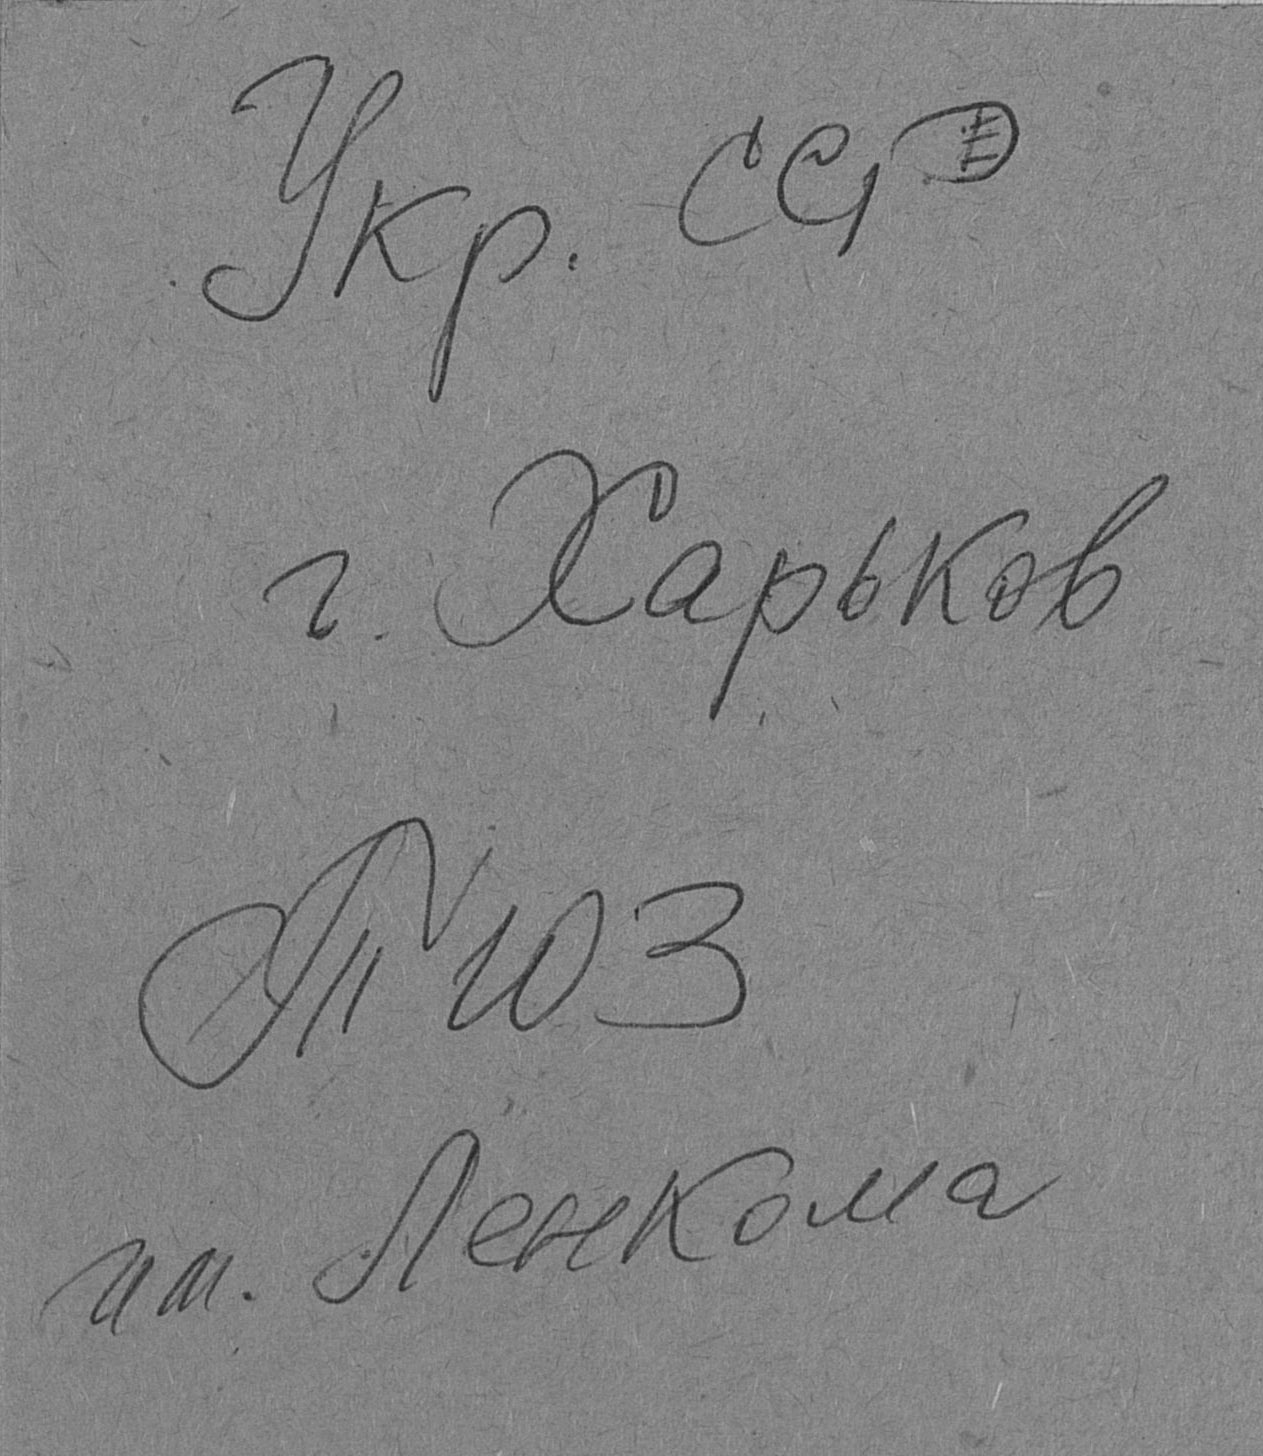 Укр. ССР
г. Харьков
ТЮЗ
им. Ленкома